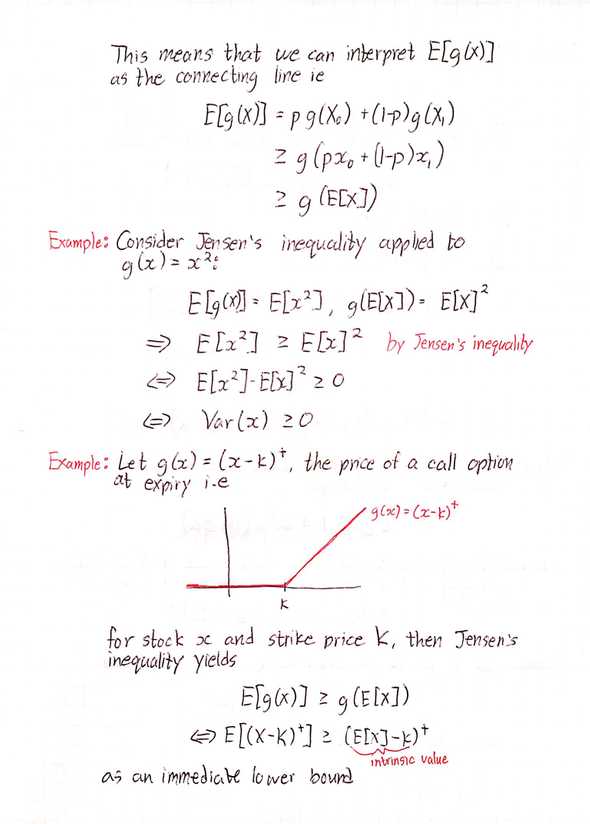 This means that we can interpret E[g(x)]
as the connecting line ie
E[g(X)] = p g(X₀) + (1-p)g(X₁)
≥ g(px₀ + (1-p)x₁)
≥ g(E[X])
Example: Consider Jensen's inequality applied to
g(x) = x²:
E[g(x)] = E[x²], g(E[X]) = E[X]²
⇒ E[x²] ≥ E[x]² by Jensen's inequality
⇔ E[x²]-E[x]² ≥ 0
⇔ Var(x) ≥ 0
Example: Let g(x) = (x-k)⁺, the price of a call option
at expiry i.e
g(x) = (x-k)⁺
K
for stock x and strike price K, then Jensen's
inequality yields
E[g(x)] ≥ g(E[X])
⇔ E[(X-K)⁺] ≥ (E[X]-k)⁺
intrinsic value
as an immediate lower bound